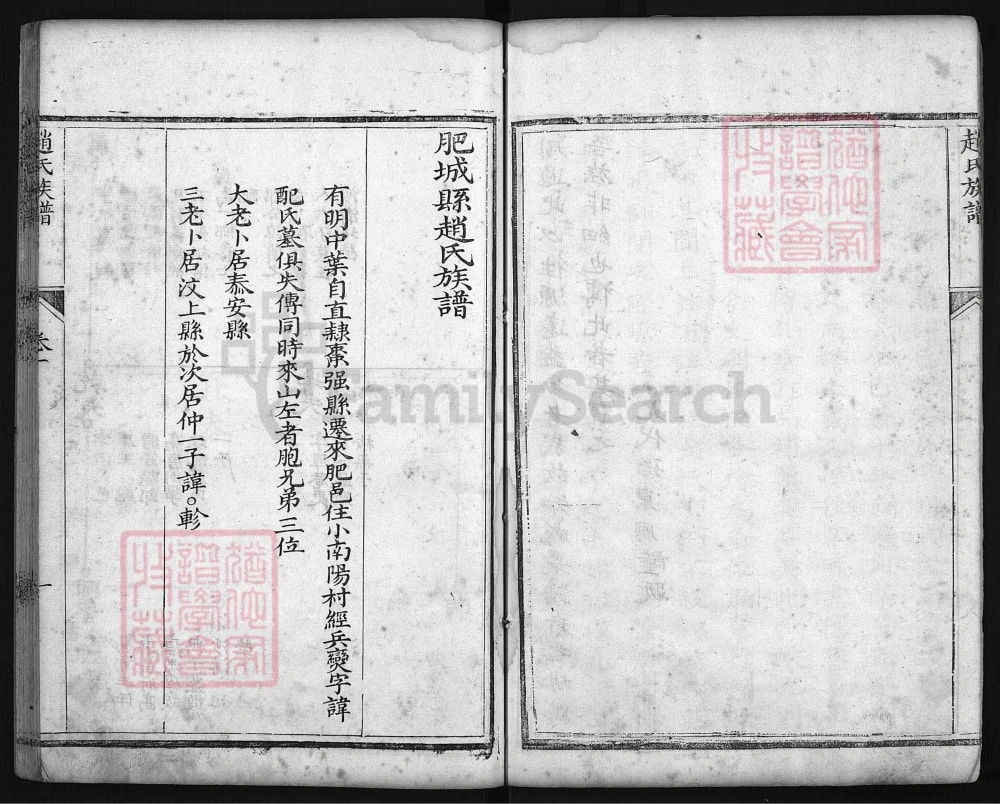 趙氏族譜
肥城縣趙氏族譜
有明中葉自直隸棗强縣遷來肥邑住小南陽村經兵變字諱
配氏墓俱失傳同時來山左者胞兄弟三位
大老卜居泰安縣
三老卜居汶上縣於次居仲一子諱○軫
趙氏族譜
卷一
一
FamilySearch